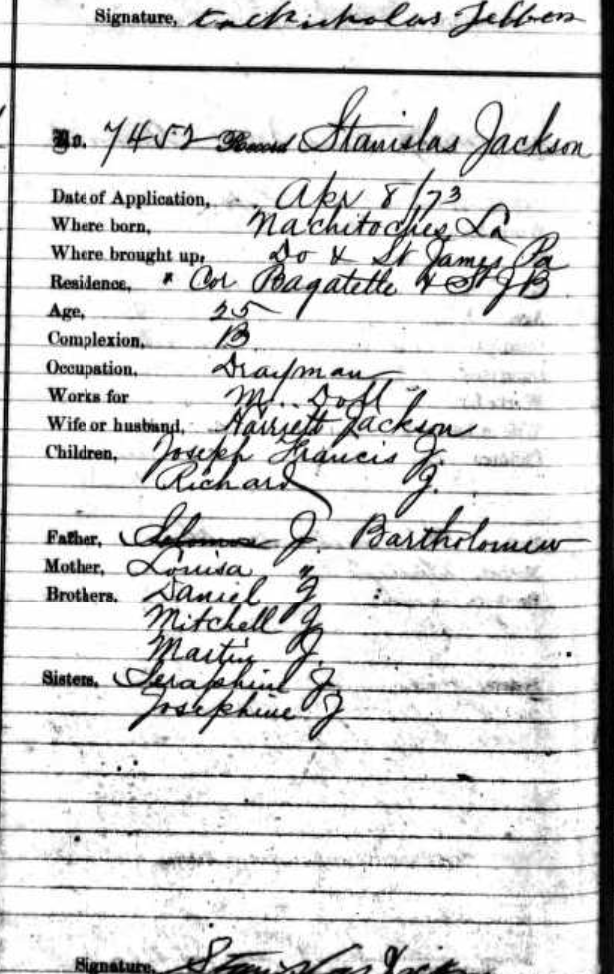 Signature, Nicholas
No. 7452 Record Stanislas Jackson
Date of Application, Apr 8/73
Where born, Nachitoches La
Where brought up, Do & St James Pa
Residence, * Cor Bagatelle & St J B
Age, 25
Complexion, B
Occupation, Drayman
Works for M.
Wife or husband, Harriett Jackson
Children, Joseph Francis J.
Richard J.
Father, Solomon J. Bartholomew
Mother, Louisa "
Brothers. Daniel J
Mitchell J
Martin J.
Sisters, Seraphine J
Josephine J
Signature, Stanislas Jack